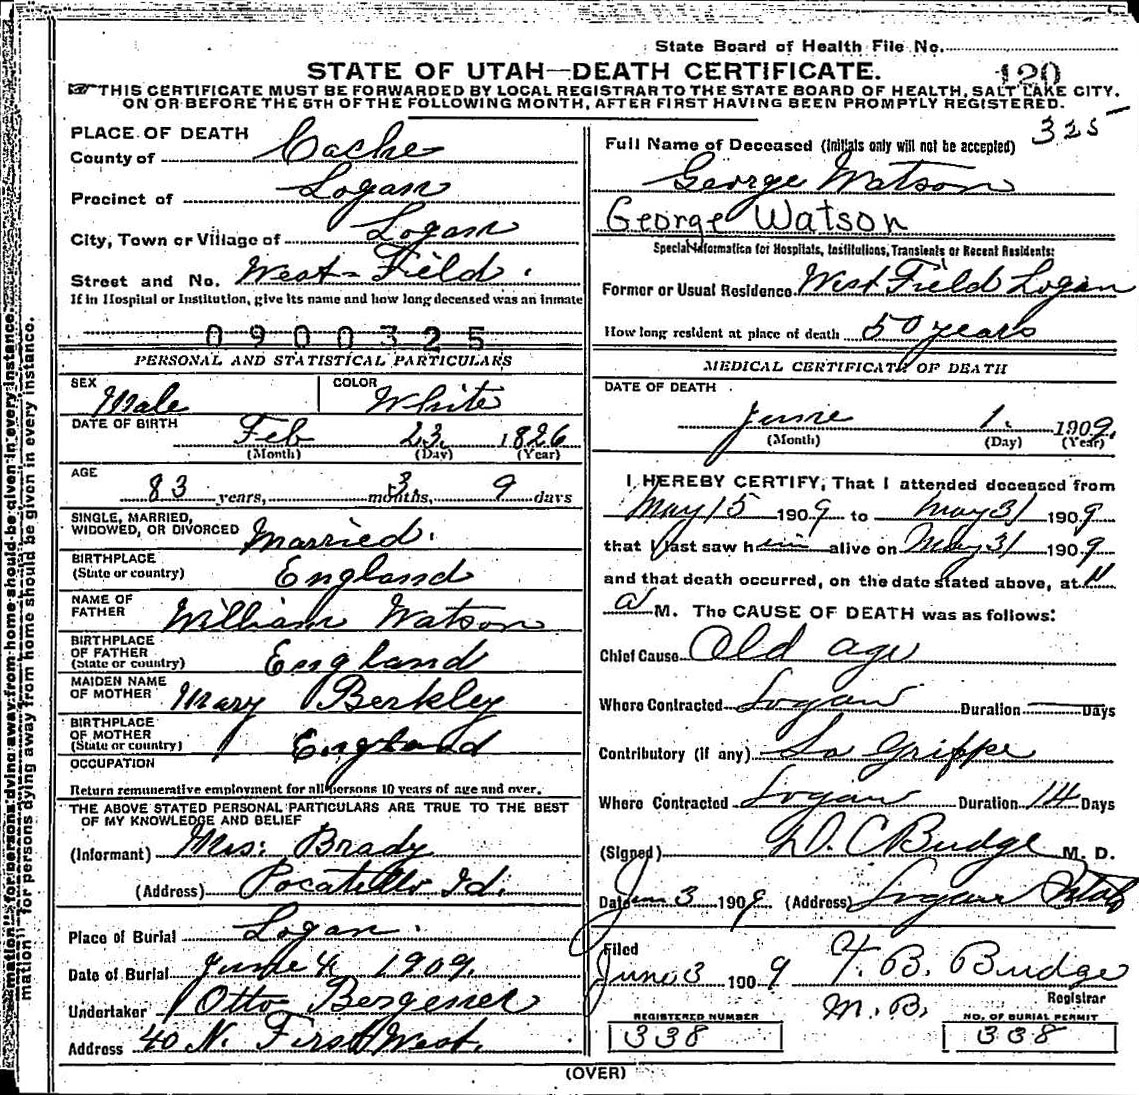 State Board of Health File No.
120
STATE OF UTAH—DEATH CERTIFICATE.
THIS CERTIFICATE MUST BE FORWARDED BY LOCAL REGISTRAR TO THE STATE BOARD OF HEALTH, SALT LAKE CITY.
ON OR BEFORE THE 5TH OF THE FOLLOWING MONTH, AFTER FIRST HAVING BEEN PROMPTLY REGISTERED.
325
PLACE OF DEATH
County of Cache
Precinct of Logan
City, Town or Village of Logan
Street and No. West Field.
If in Hospital or Institution, give its name and how long deceased was an inmate
0900325
PERSONAL AND STATISTICAL PARTICULARS
SEX Male COLOR White
DATE OF BIRTH Feb 23. 1826
(Month) (Day) (Year)
AGE 83 years, 3 months, 9 days
SINGLE, MARRIED,
WIDOWED, OR DIVORCED Married.
BIRTHPLACE
(State or country) England
NAME OF
FATHER William Watson
BIRTHPLACE
OF FATHER
(State or country) England
MAIDEN NAME
OF MOTHER Mary Berkley
BIRTHPLACE
OF MOTHER
(State or country) England
OCCUPATION
Return remunerative employment for all persons 10 years of age and over.
THE ABOVE STATED PERSONAL PARTICULARS ARE TRUE TO THE BEST
OF MY KNOWLEDGE AND BELIEF
(Informant) Mrs. Brady
(Address) Pocatello Id.
Place of Burial Logan.
Date of Burial June 4 1909.
Undertaker Otto Bergener
Address 40 N. First West.
Full Name of Deceased (Initials only will not be accepted)
George Watson
George Watson
Special Information for Hospitals, Institutions, Transients or Recent Residents:
Former or Usual Residence West Field Logan
How long resident at place of death 50 years
MEDICAL CERTIFICATE OF DEATH
DATE OF DEATH
June 1. 1909.
(Month) (Day) (Year)
I HEREBY CERTIFY, That I attended deceased from
May 15 1909 to May 31 1909
that I last saw him alive on May 31 1909
and that death occurred, on the date stated above, at 11
a M. The CAUSE OF DEATH was as follows:
Chief Cause Old age
Where Contracted Logan Duration Days
Contributory (if any) La Grippe
Where Contracted Logan Duration 14 Days
(Signed) D. C. Budge M. D.
Date Jun 3 1909 (Address) Logan Utah
Filed
June 3 1909 T. B. Budge
M.D. Registrar
REGISTERED NUMBER NO. OF BURIAL PERMIT
338 338
(OVER)
mation" for persons dying away from home should be given in every instance.